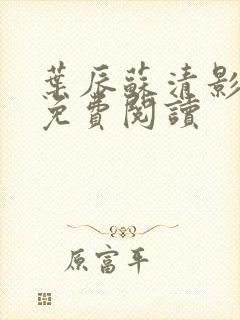 葉辰蘇清影
免費閱讀
原富平